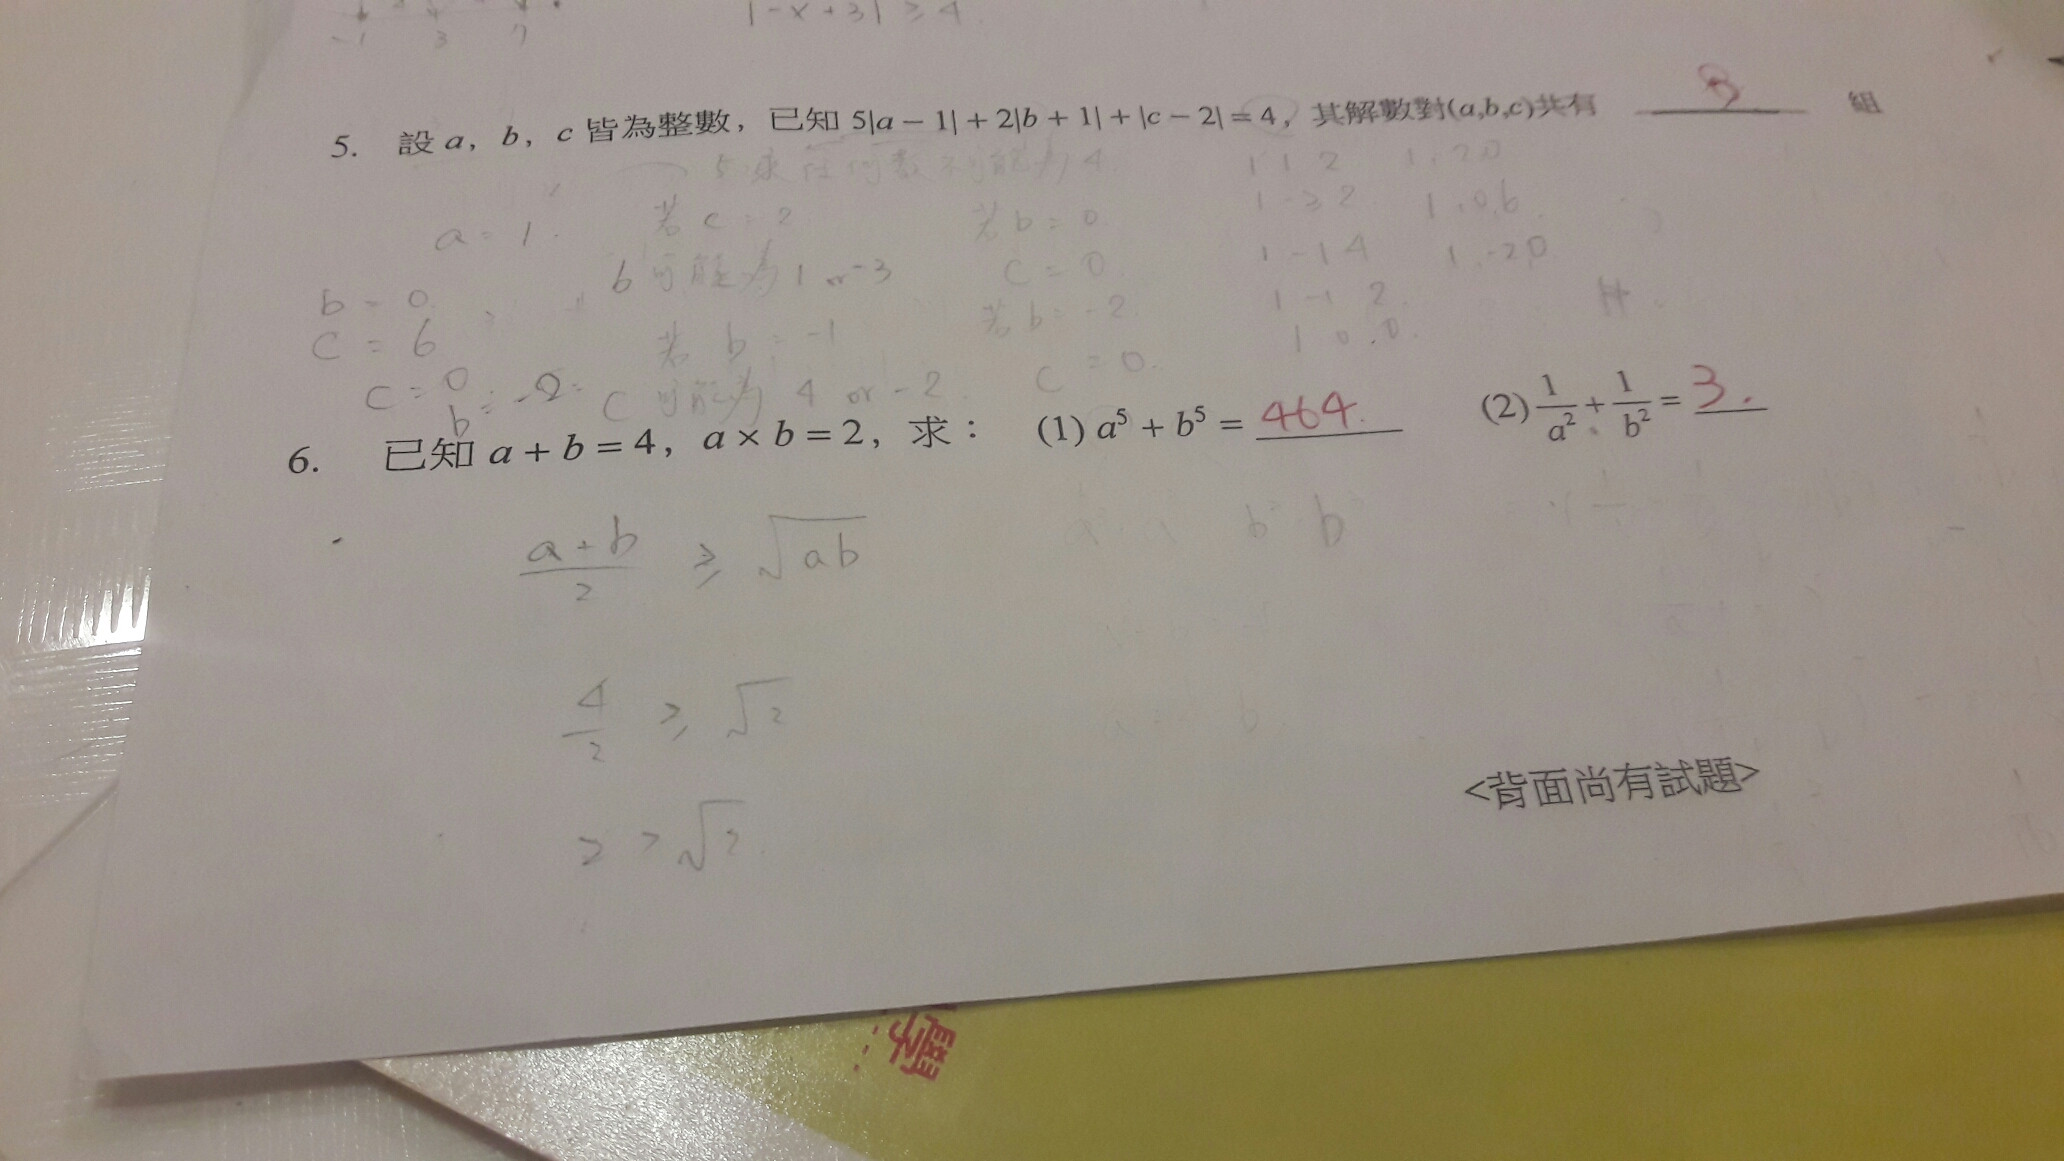 -1 3 7
|-x+3| ≥ 4
5. 設 a，b，c 皆為整數，已知 5|a − 1| + 2|b + 1| + |c − 2| = 4，其解數對(a,b,c)共有 8 組
5乘任何數不可能為4
1 1 2 1, 2 0
a = 1. 若 c = 2 若 b = 0 1 -3 2 1, 0, 6
b = 0 b 可能為 1 or -3 c = 0 1 -1 4 1, -2, 0
c = 6 若 b = -1 若 b = -2 1 -1 2
c = 0 b = -2 c 可能為 4 or -2 c = 0. 1 0, 0.
6. 已知 a + b = 4，a × b = 2，求： (1) a⁵ + b⁵ = 464. (2) 1/a² + 1/b² = 3.
(a+b)/2 ≥ √ab
b b
4/2 ≥ √2
2 > √2
<背面尚有試題>
學